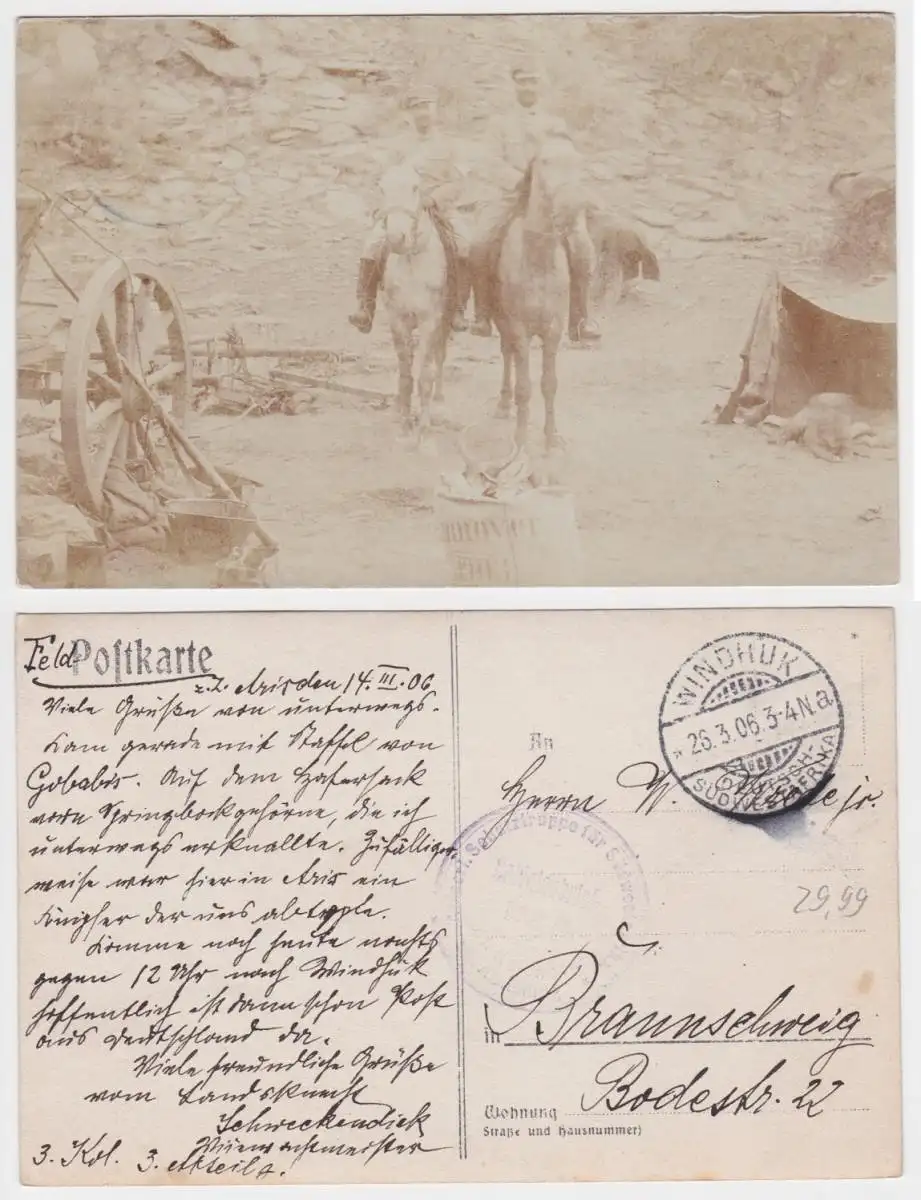 Feld-Postkarte
z. Z. Aris den 14. III. 06
Viele Grüße von unterwegs.
Kam gerade mit Staffel von
Gobabis. Auf dem Hafersack
vorn Springbockgehörne, die ich
unterwegs erknallte. Zufälliger-
weise war hier in Aris ein
Knipser der uns abtyple.
Komme noch heute nachts
gegen 12 Uhr nach Windhuk
hoffentlich ist dann schon Post
aus Deutschland da.
Viele freundliche Grüße
vom Landsknecht
Schweckendiek
3. Kol. 3. Abteilg.
WINDHUK
* 26.3.06.3-4N. a
DEUTSCH-
SÜDWESTAFRIKA
An
Herrn W. jr.
Schutztruppe für Südwest
29,99
in Braunschweig
Bodestr. 22
Wohnung
(Straße und Hausnummer)